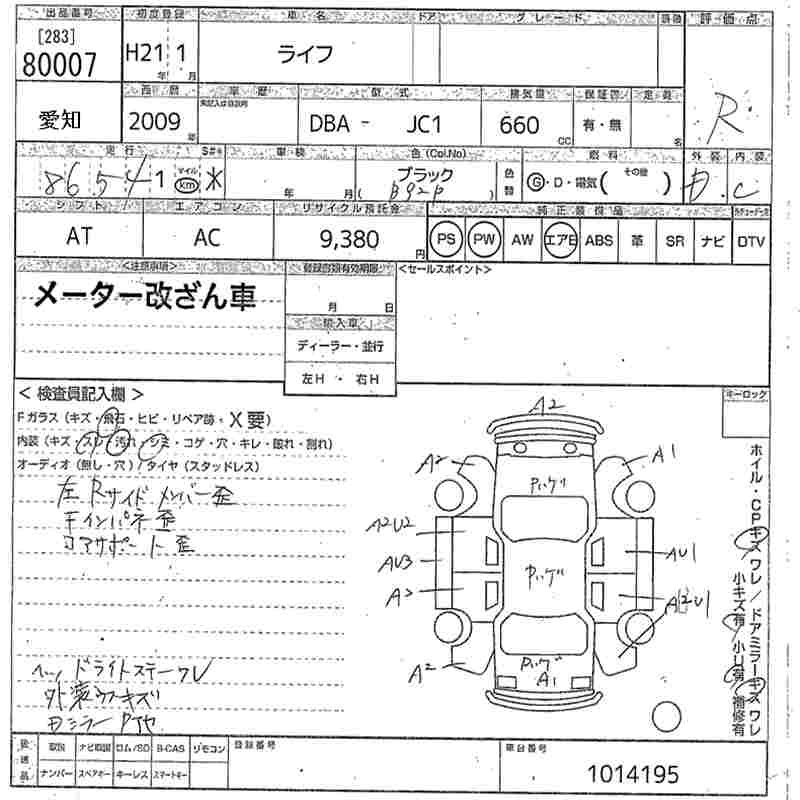 出品番号 初度登録 車名 ドア グレード 評価点
[283]
80007 H21 1 ライフ R
年 月
西暦 車歴 型式 排気量 定員
愛知 2009 DBA - JC1 660 有・無
年 CC 名
走行 車検 色(Col.No) 燃料 外装 内装
86541 マイル km * 年 月 ブラック 色替 G・D・電気( その他 ) D. C
( B92P )
シフト エアコン リサイクル預託金 純正装備品
AT AC 9,380 円 PS PW AW エアB ABS 革 SR ナビ DTV
<注意事項> 登録書類有効期限 <セールスポイント>
メーター改ざん車 月 日
輸入車
ディーラー・並行
左H・右H
< 検査員記入欄 > キーロック
Fガラス(キズ・飛石・ヒビ・リペア跡・X要)
内装(キズ・スレ・汚れ・シミ・コゲ・穴・キレ・破れ・割れ)
オーディオ(無し・穴)/タイヤ(スタッドレス)
左Rサイドメンバー歪
Fインパネ歪
コアサポート歪
ドライトステーワレ
外装ワフキズ
A2
A2 A1
A2U2
AU3 AU1
A3
A2
A1
ホイル・CPキズワレ/ドアミラーキズワレ
小キズ有/小U有/補修有
後送品 取説 ナビ取説 ロム/SD B-CAS リモコン 登録番号 車台番号
ナンバー スペアキー キーレス スマートキー 1014195